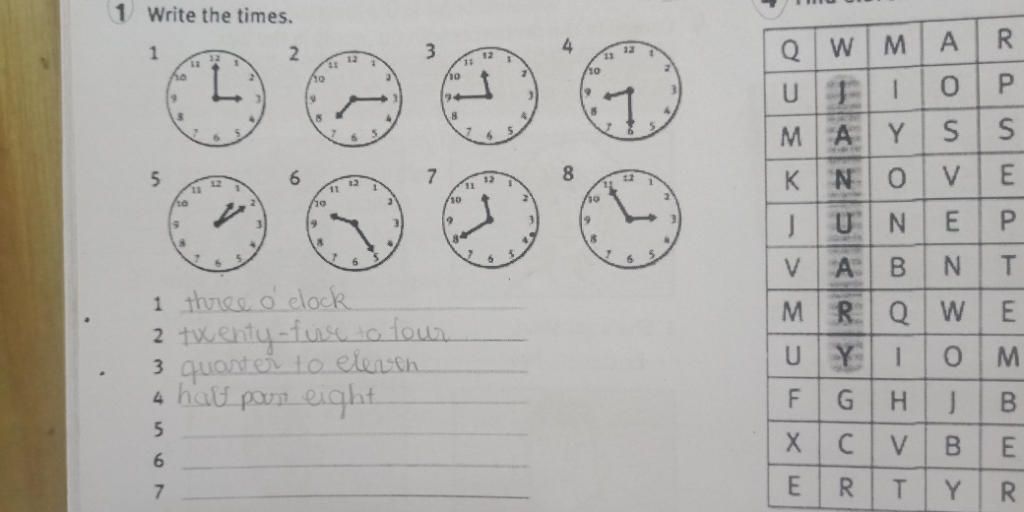 1 Write the times.
1 2 3 4
5 6 7 8
1 three o'clock
2 twenty-five to four
3 quarter to eleven
4 half past eight
5
6
7
Q W M A R
U J I O P
M A Y S S
K N O V E
J U N E P
V A B N T
M R Q W E
U Y I O M
F G H J B
X C V B E
E R T Y R